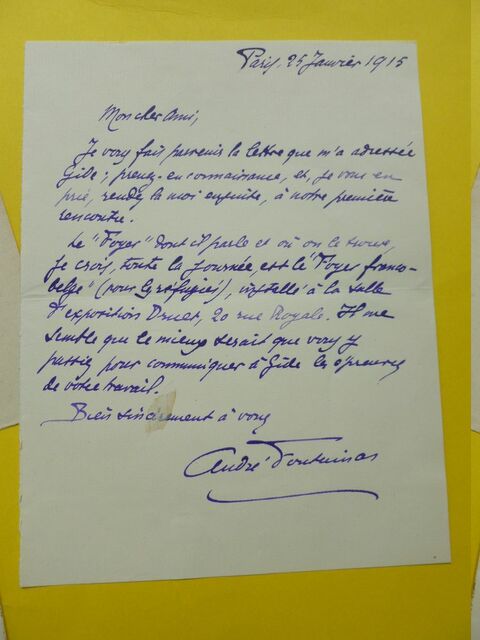 Paris, 25 Janvier 1915
Mon cher Ami,
Je vous fait parvenir la lettre que m'a adressée
Gide; prenez-en connaissance, et, je vous en
prie, rendez la moi ensuite, à notre première
rencontre.
Le "Foyer" dont il parle et où on le trouve,
je crois, toute la journée, est le "Foyer franco-
belge" (pour les réfugiés), installé à la salle
d'exposition Druet, 20 rue Royale. Il me
semble que le mieux serait que vous y
passiez pour communiquer à Gide les épreuves
de votre travail.
Bien sincèrement à vous
André Fontainas